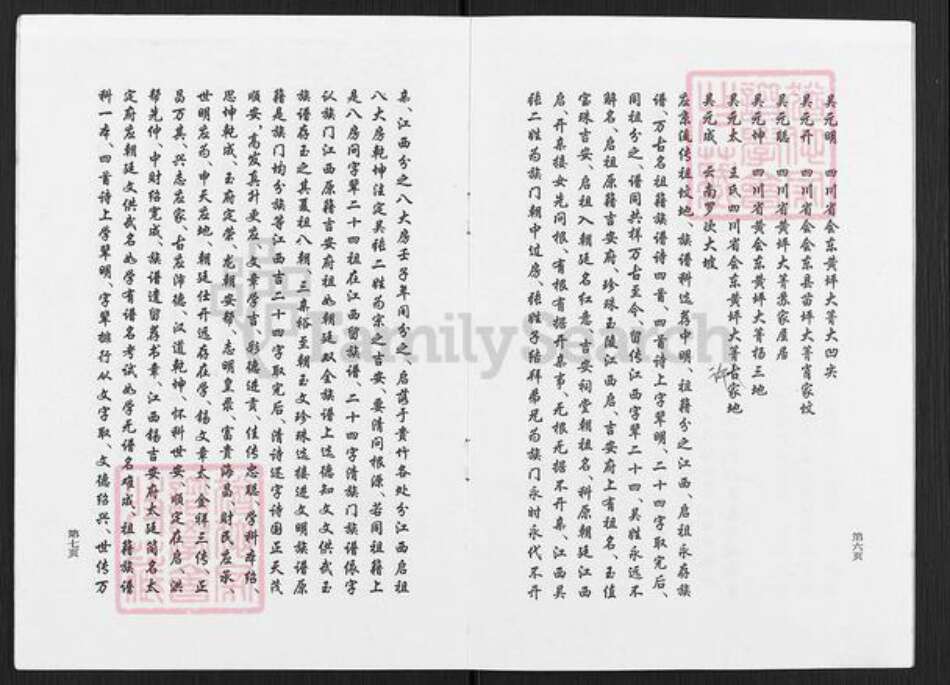 吴元明 四川省会东黄坪大箐大凹尖
吴元开 四川省会东县苗大箐肖家坟
吴元聪 四川省黄坪大箐苏家屋居
吴元坤 四川省黄会东黄坪大箐杨三地
吴元太 王氏四川省会东黄坪大箐古家地
吴元成 云南罗次大坡
应东流传祖坟地、族谱科选荐中明、祖籍分之江西、启祖永存族
谱、万古名祖籍族谱诗四首、四首诗上字辈明、二十四字取完后、
同祖分之、谱同共样万古至今、留传江西字辈二十四、吴姓永远不
解名、启祖原籍吉安府、珍珠玉陵江西启、吉安府上有祖名、玉值
宝珠吉安、启祖入朝廷名红意、吉安祠堂朝祖名、科原朝廷江西
启、开亲接女先问根、有根有据开亲事、无根无据不开亲、江西吴
张二姓为族门朝中过房、张姓子结拜弟兄为族门永时永代不开
第六页
亲、江西分之八大房壬子年间分之、启荐于贵什各处分江西启祖
八大房乾坤注定吴张二姓为宗之吉安、要清问根源、若同祖籍上
是八房问字辈二十四祖在江西留族谱、二十四字清族门族谱依字
认族门江西原籍吉安府祖如朝廷双全族谱上选德知文文供武玉
族谱存玉之其夏祖八朝、三亲裕至朝玉文珍珠选接进文明族谱原
籍是族门均分族等江西吉二十四字取完后、清诗逐字诗国正天茂
顺安、高发真升更应、文章学吉、彩德进贡、佳传忠聪、学科本绍、
思坤乾成、玉府定荣、龙朝安邦、志明皇录、富贵海昌、财民应承、
世明应为、申天应地、朝廷仕开远存在学、锡文章太、金祥三传、正
昌万其、兴志应家、古应沛德、汉道乾坤、怀科世安、顺定在启、洪
帮先仲、中财绍完成、族谱遗留荐书章、江西锡吉安府太廷简名太
定府应朝廷文供武名如学有谱名考试如学无谱名难成、祖籍族谱
科一本、四首诗上学辈明、字辈排行从文字取、文德绍兴、世传万
第七页
FamilySearch